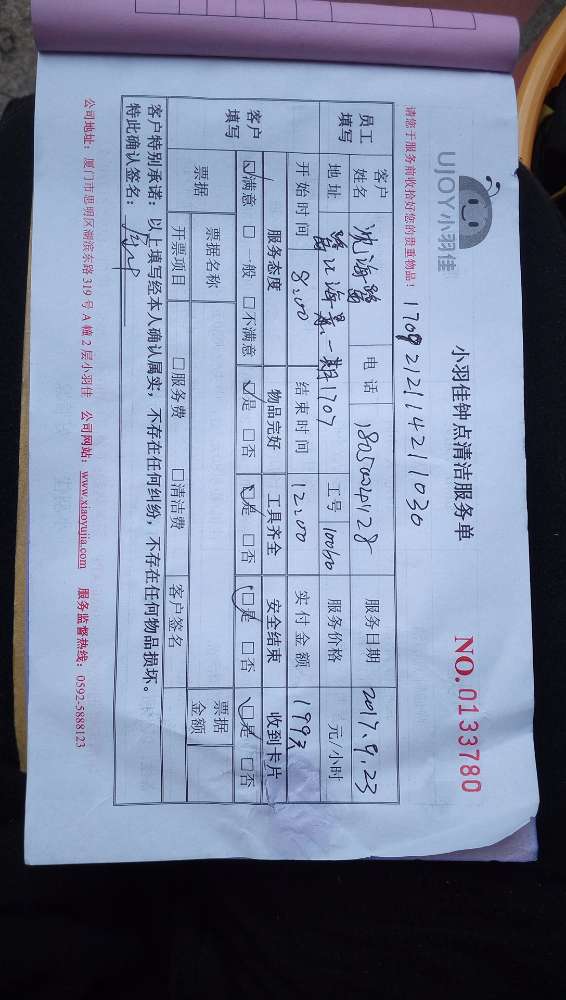 UJOY小羽佳
小羽佳钟点清洁服务单
NO.0133780
请您于服务前收拾好您的贵重物品!
1709212114211030
员工填写 客户姓名 沈海 电话 服务日期 2017.9.23
地址 海景一期1707 工号 10060 服务价格 元/小时
开始时间 8:00 结束时间 12:00 实付金额 199
客户填写 服务态度 物品完好 工具齐全 安全结束 收到卡片
☑满意 □一般 □不满意 ☑是 □否 ☑是 □否 ☑是 □否 ☑是 □否
票据 票据名称 票据金额
开票项目 □服务费 □清洁费 客户签名
客户特别承诺:以上填写经本人确认属实,不存在任何纠纷,不存在任何物品损坏。
特此确认签名:
公司地址:厦门市思明区湖滨东路319号A幢2层小羽佳 公司网站:www.xiaoyujia.com 服务监督热线:0592-5888123